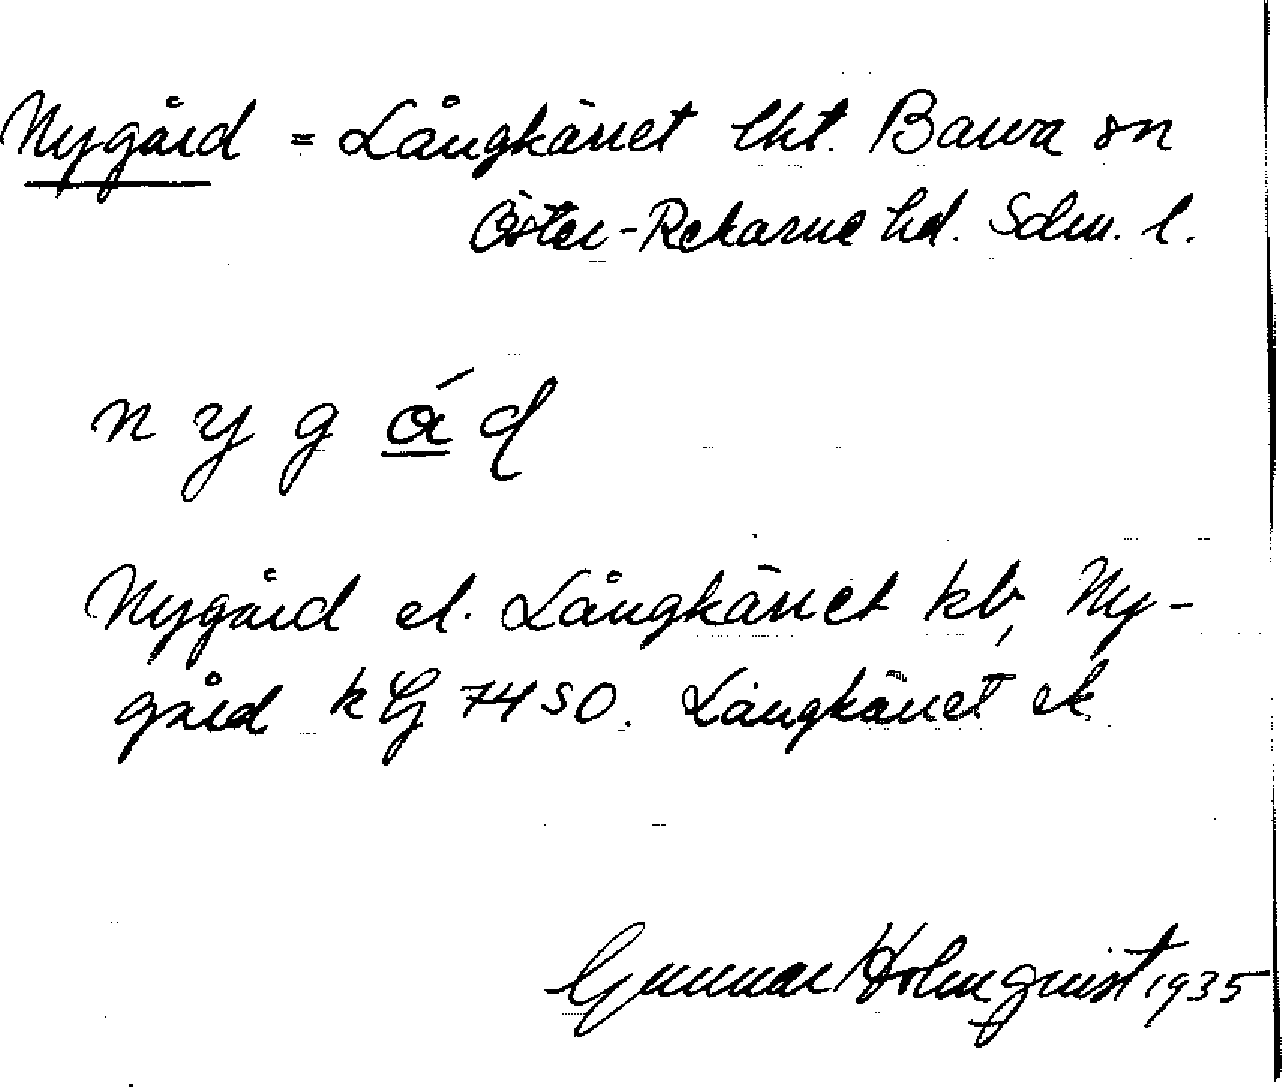 Nygård = Långkärret lht. Barva sn
Öster-Rekarne hd. Sdm. l.
n y g å d
Nygård el. Långkärret kb, Ny-
gård kG 7450. Långkärret ek
Gunnar Holmquist 1935